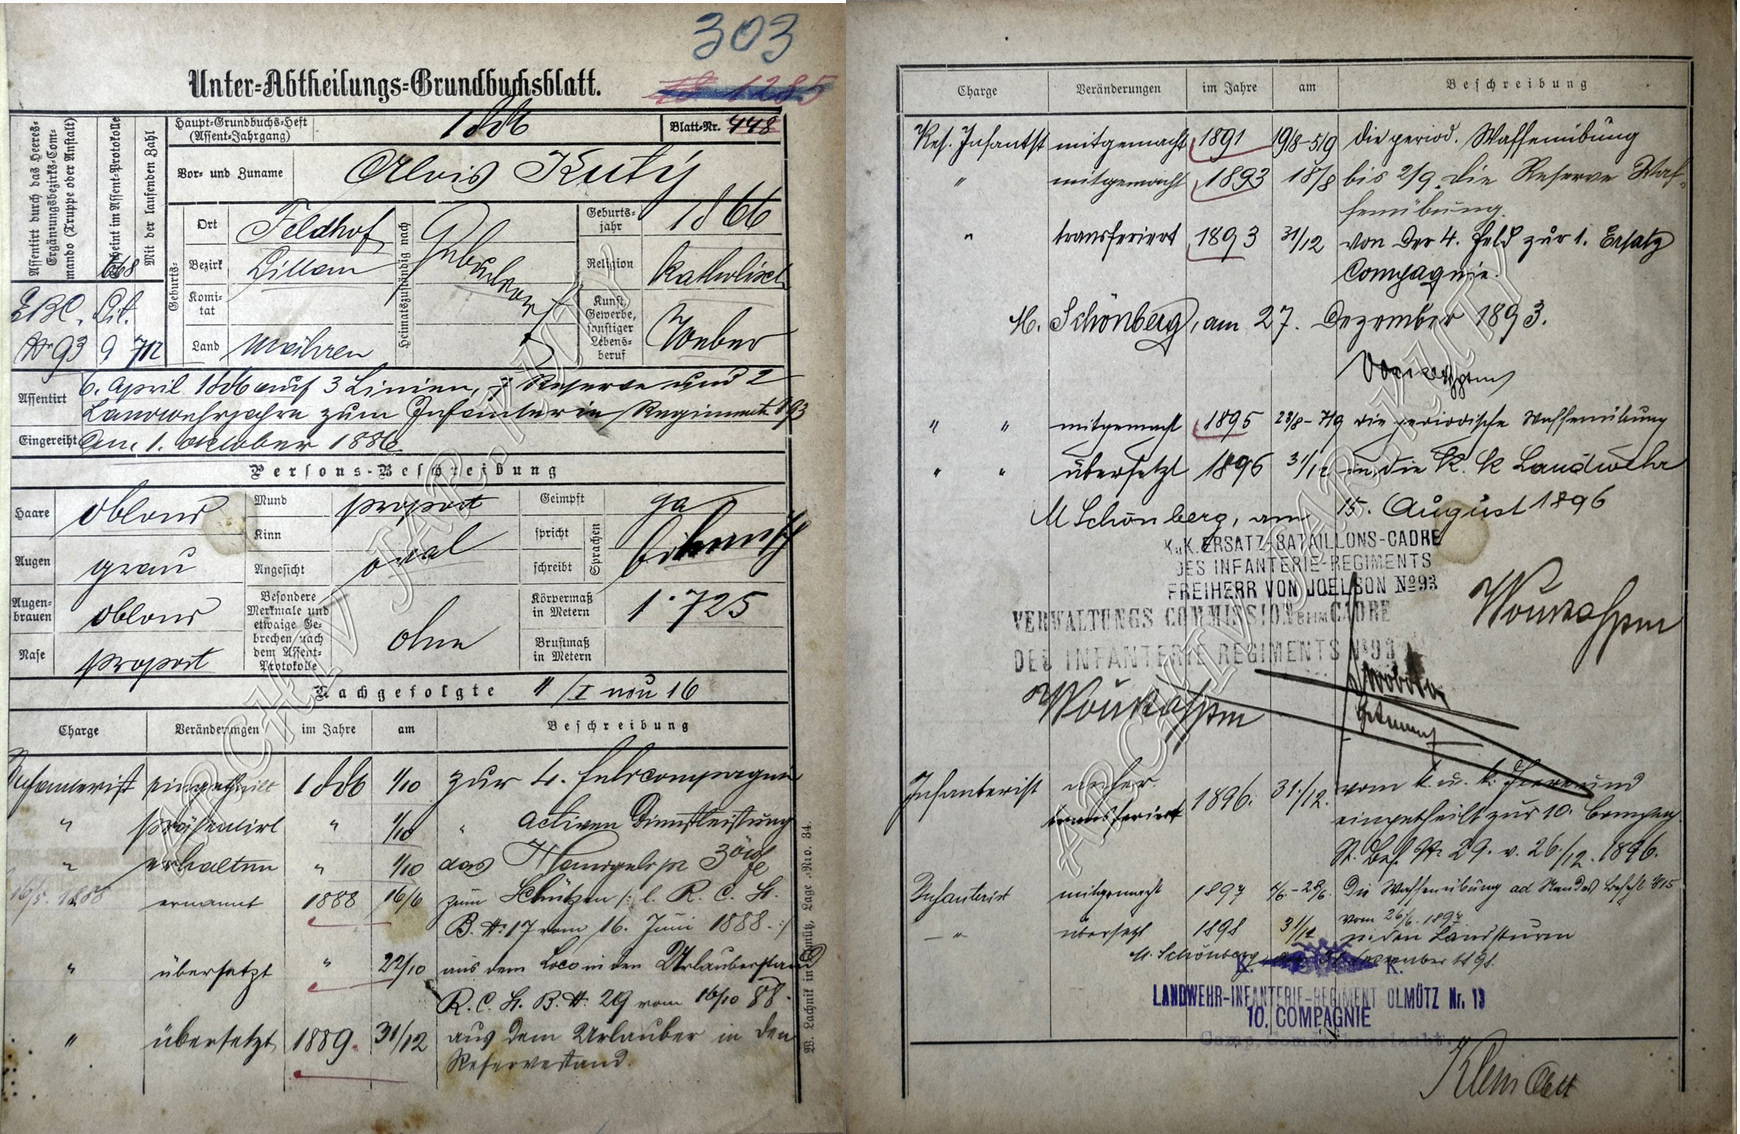 303
Unter-Abtheilungs-Grundbuchsblatt.
18 1285
Assentirt durch das Heeres-Ergänzungsbezirks-Commando (Truppe oder Anstalt)
Erscheint im Assent-Protokolle
Mit der laufenden Zahl
668
No 93 9 712
Haupt-Grundbuchs-Heft
(Assent-Jahrgang)
1886
Blatt-Nr. 448
Vor- und Zuname
Alois Kutý
Geburts-
Ort Feldhof
Bezirk
Komi-
tat
Land Mähren
Heimatszuständig nach
Geburts-
jahr 1866
Religion katholisch
Kunst,
Gewerbe,
sonstiger
Lebens-
beruf
Weber
Assentirt
6. April 1886 auf 3 Linien, 7 Reserve und 2
Landwehrjahre zum Infanterie Regimente No 93
Eingereiht am 1. October 1886
Persons-Beschreibung
Haare blond
Augen grau
Augen-
brauen blond
Nase proport
Mund proport
Kinn
Angesicht oval
Besondere
Merkmale und
etwaige Ge-
brechen nach
dem Assent-
Protokolle
ohne
Geimpft ja
spricht
schreibt
Sprachen
böhmisch
Körpermaß
in Metern 1·725
Brustmaß
in Metern
Nachgefolgte
Charge Veränderungen im Jahre am Beschreibung
Infanterist eingetheilt 1886 1/10 zur 4. Feldcompagnie
" präsentirt " 1/10 " activen Dienstleistung
" erhalten " 1/10 das
16/5. 1888
ernannt 1888 16/6 zum Schützen /: l. R. C. St.
B. No 17 vom 16. Juni 1888 :/
" übersetzt " 22/10 aus dem Loco in den Urlauberstand
R. C. St. B. No 29 vom 16/10 88.
" übersetzt 1889. 31/12 aus dem Urlauber in den
Reservestand.
W. Lachnik in Olmütz, Lage Nro. 34.
ARCHIV JAP. KUTY
Charge Veränderungen im Jahre am Beschreibung
Res. Infantst mitgemacht 1891 19/8-5/9 die period. Waffenübung
" mitgemacht 1893 18/8 bis 2/9 die Reserve Waf-
fenübung.
" transferirt 1893 31/12 von der 4. Feld zur 1. Ersatz
Compagnie.
M. Schönberg, am 27. Dezember 1893.
" " mitgemacht 1895 23/8-7/9 die periodische Waffenübung
" " übersetzt 1896 31/12 in die K. K Landwehr
M Schönberg, am 15. August 1896
K.u.K. ERSATZ-BATAILLONS-CADRE
DES INFANTERIE-REGIMENTS
FREIHERR VON JOELSON No 93
VERWALTUNGS COMMISSION BEIM CADRE
DES INFANTERIE REGIMENTS No 93
Infanterist anher
transferirt 1896. 31./12. vom k. u. k. Heere und
eingetheilt zur 10. Compag.
St. Bef. No 29. v. 26./12. 1896.
Infanterist mitgemacht 1897 1/6-28/6. Die Waffenübung ad Standes Befehl
vom 26/6. 1897
–"– übersetzt 1898 31/12 in den Landsturm
M. Schönberg am 31 Dezember 1898.
K. K.
LANDWEHR-INFANTERIE-REGIMENT OLMÜTZ Nr. 13
10. COMPAGNIE
Klein Oblt
ARCHIV JAP. KUTY